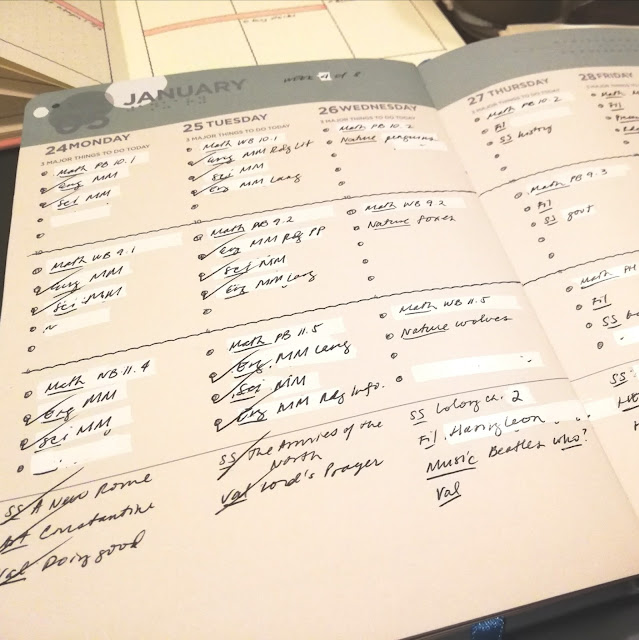 JANUARY
WEEK 4 OF 8
24 MONDAY
3 MAJOR THINGS TO DO TODAY
Math PB 10.1
Eng MM
Sci MM
Math WB 9.1
Eng MM
Sci MM
Math WB 11.4
Eng MM
Sci MM
SS A New Rome
Constantine
Val Doing good
25 TUESDAY
3 MAJOR THINGS TO DO TODAY
Math WB 10.1
Eng MM Rdg Lit
Sci MM
Eng MM Lang
Math PB 9.2
Eng MM Rdg PP
Sci MM
Eng MM Lang
Math PB 11.5
Eng. MM Lang
Sci MM
Eng MM Rdg Info.
SS The Armies of the
North
Val Lord's Prayer
26 WEDNESDAY
3 MAJOR THINGS TO DO TODAY
Math PB 10.2
Nature penguins
Math WB 9.2
Nature foxes
Math WB 11.5
Nature wolves
SS Colony ch. 2
Fil Haring Leon
Music Beatles who?
Val
27 THURSDAY
3 MAJOR THINGS TO DO TODAY
Math PB 10.2
Fil
SS history
Math PB 9.3
Fil
SS govt
Math
Fil
SS
SS
28 FRIDAY
3 MAJOR THINGS TO
Math
Fil